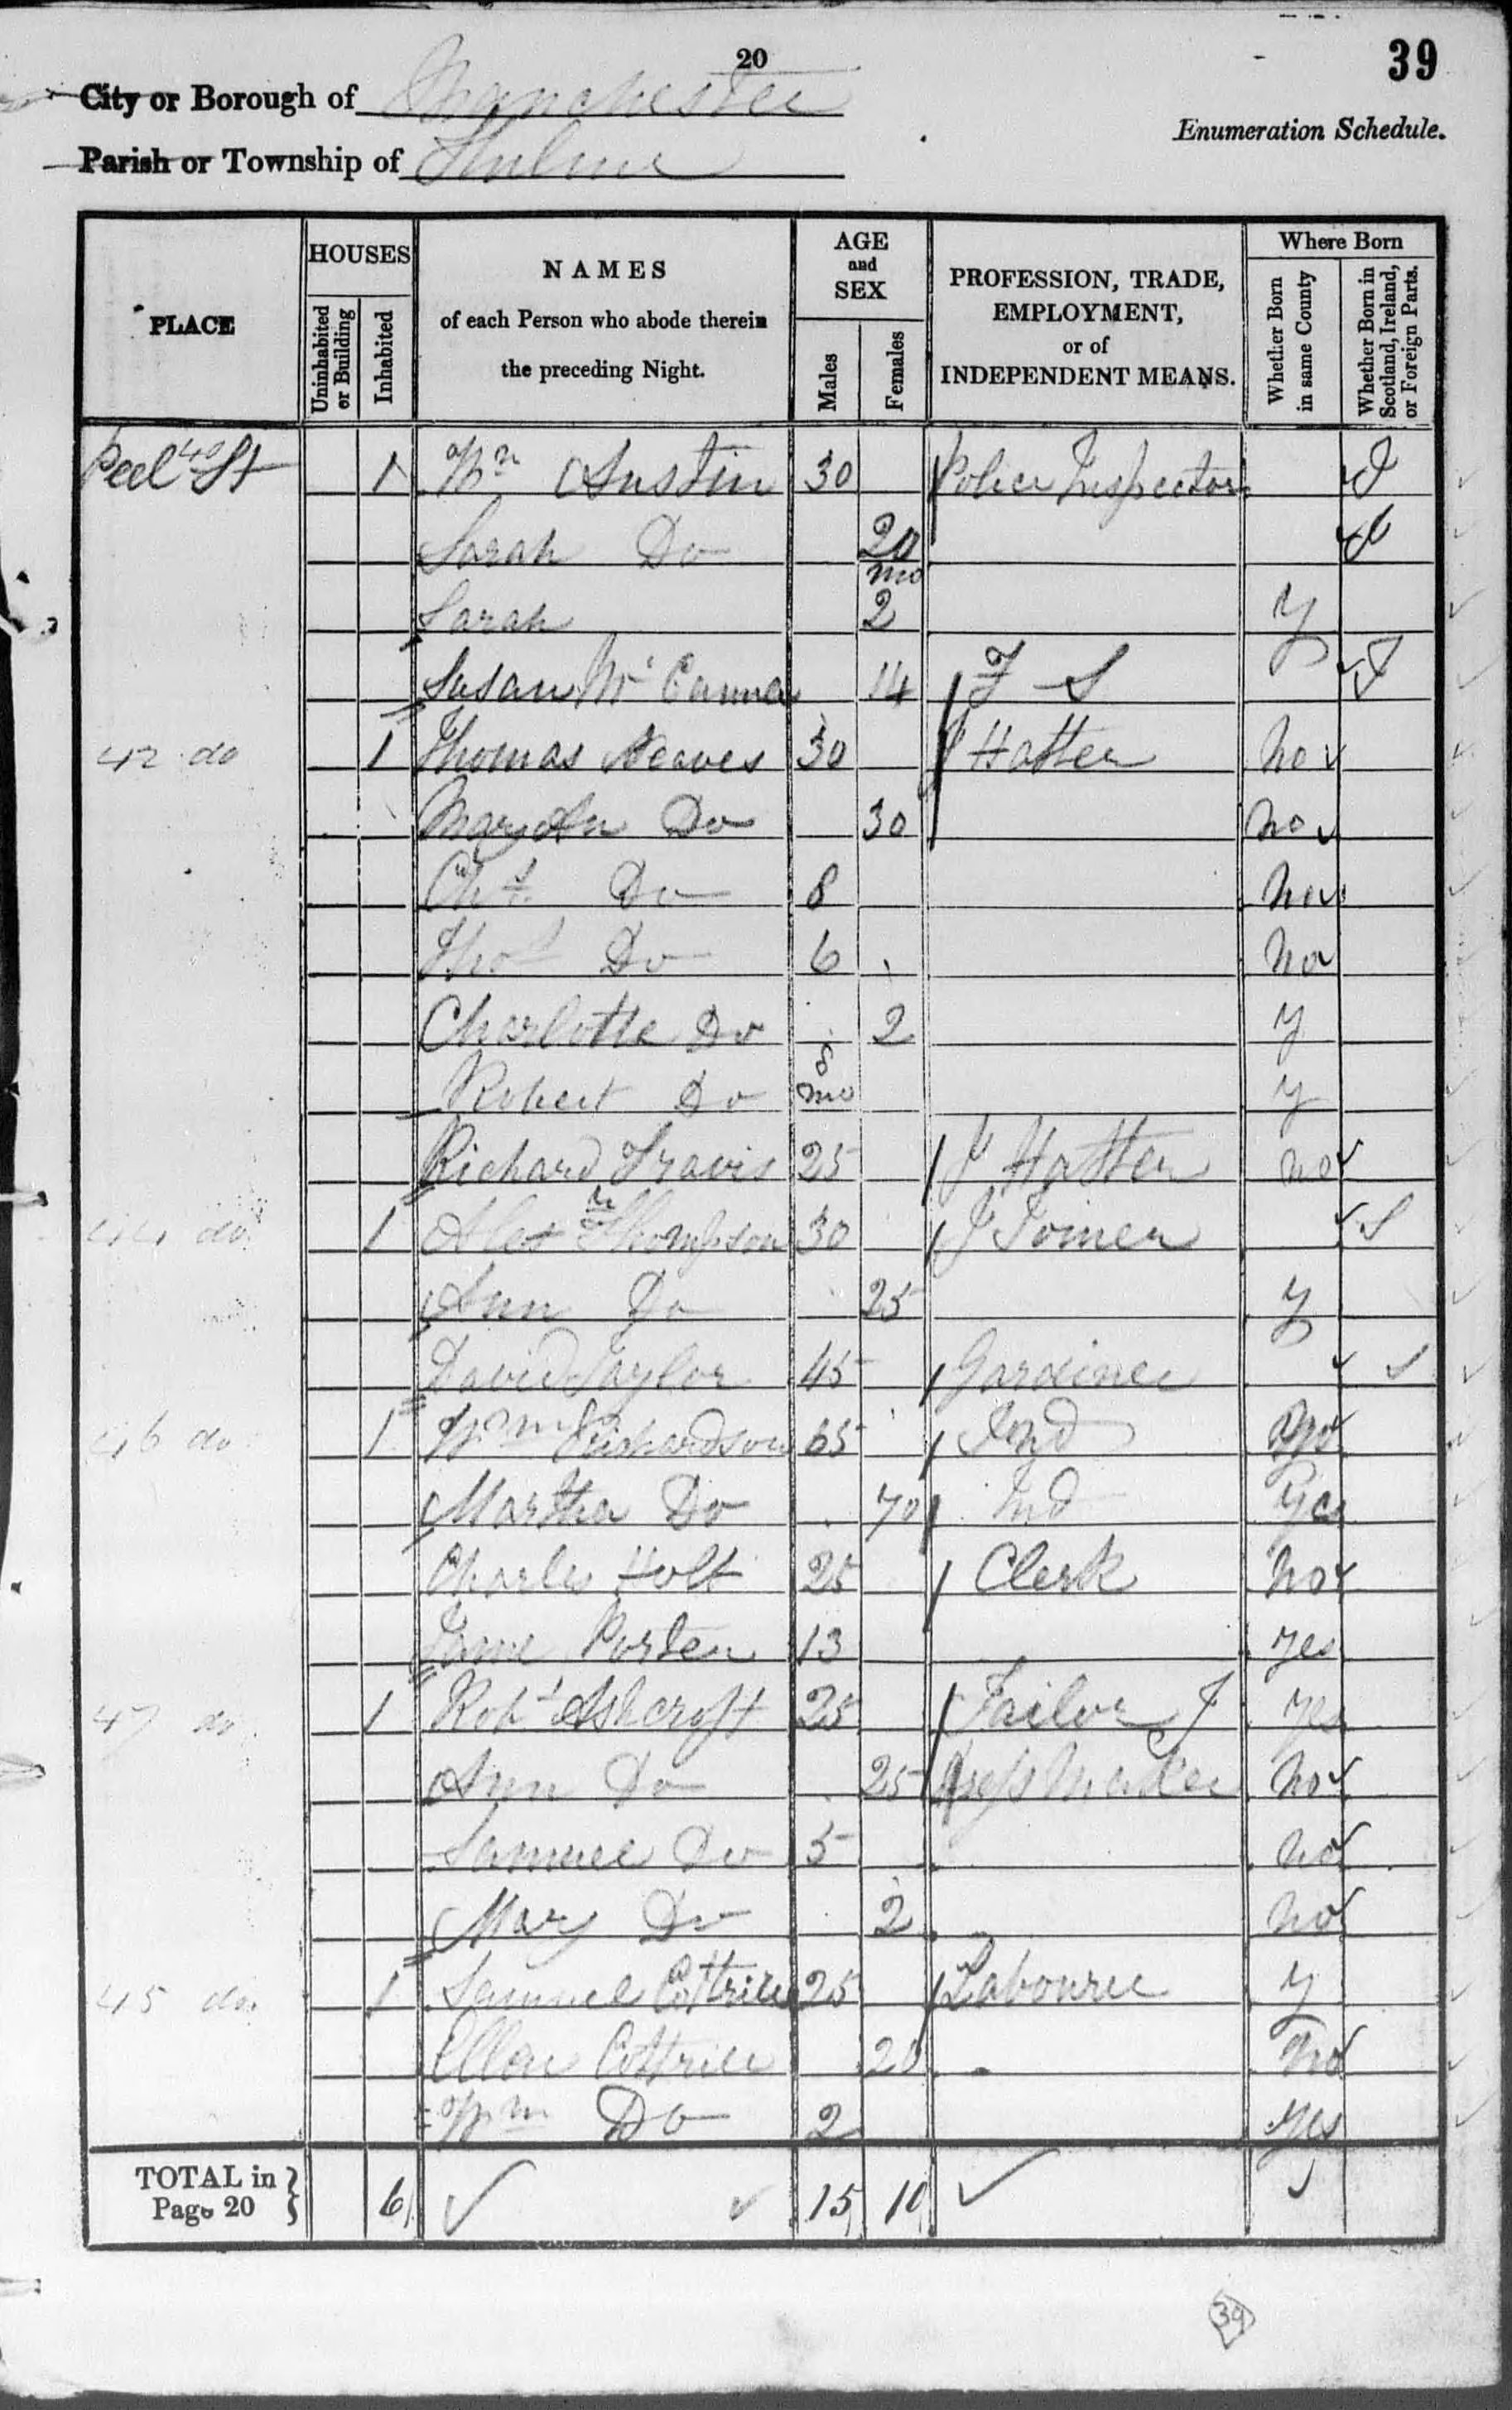 20
39
City or Borough of Manchester
Enumeration Schedule.
Parish or Township of Hulme
PLACE
HOUSES
Uninhabited or Building
Inhabited
NAMES
of each Person who abode therein
the preceding Night.
AGE
and
SEX
Males
Females
PROFESSION, TRADE,
EMPLOYMENT,
or of
INDEPENDENT MEANS.
Where Born
Whether Born in same County
Whether Born in Scotland, Ireland, or Foreign Parts.
Peel 40 St 1 Wm Austin 30 Police Inspector I
Sarah Do 20
Sarah mo 2 y
Susan Mc 14 F S I
42 do 1 Thomas Neaves 30 J Hatter no
Mary An Do 30 no
Chs Do 8 no
Thos Do 6 no
Charlotte Do 2 y
Robert Do 8 mo y
Richard Travis 25 J Hatter no
44 do 1 Alexr Thompson 30 J Joiner S
Ann Do 25 y
David Taylor 45 Gardiner S
46 do 1 Wm Richardson 65 Ind no
Martha Do 70 Ind Yes
Charles Holt 25 Clerk no
Jane Porter 13 yes
47 do 1 Robt Ashcroft 25 Tailor J yes
Ann Do 25 Dress Maker no
Samuel Do 5 no
Mary Do 2 no
45 do 1 Samuel Cottrill 25 Labourer y
Ellen Cottrill 20 no
Wm Do 2 yes
TOTAL in Page 20 6 15 10
39